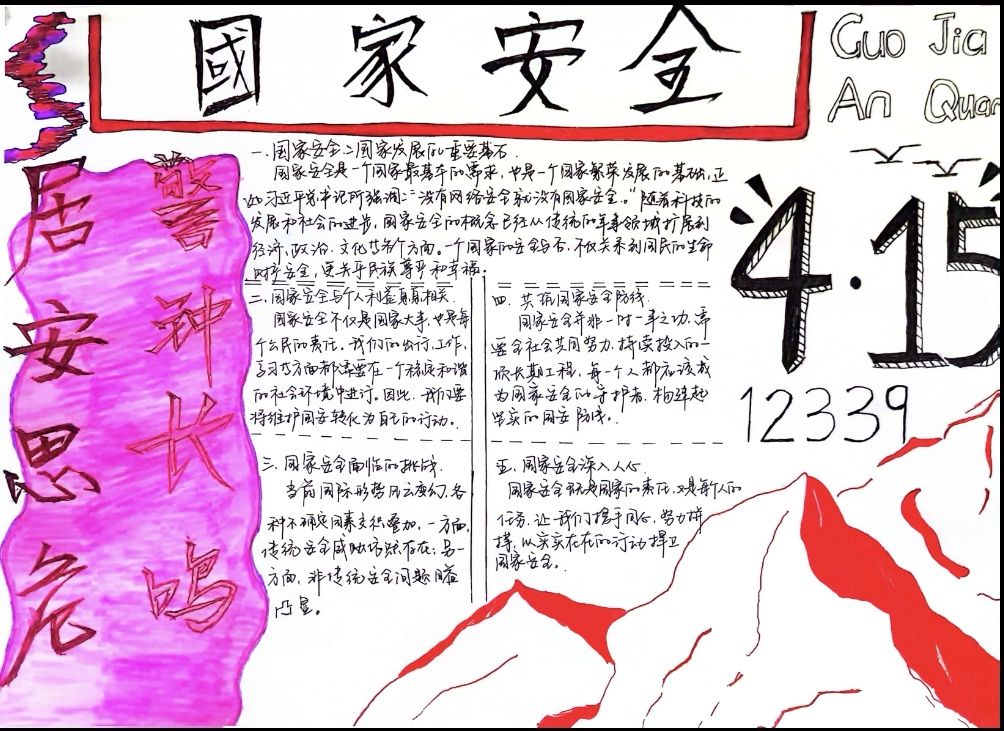 國家安全
Guo Jia
An Quan
居安思危
警钟长鸣
4·15
12339
一、国家安全:国家发展的重要基石.
国家安全是一个国家最基本的需求,也是一个国家繁荣发展的基础,正
如习近平总书记所强调:"没有网络安全就没有国家安全。"随着科技的
发展和社会的进步,国家安全的概念已经从传统的军事领域扩展到
经济、政治、文化等各个方面。一个国家的安全与否,不仅关系到国民的生命
财产安全,更关乎民族尊严和幸福。
二、国家安全与个人利益息息相关.
国家安全不仅是国家大事,也是每
个公民的责任。我们的出行、工作、
学习等方面都需要在一个稳定和谐
的社会环境中进行。因此,我们要
将维护国安转化为自己的行动。
三、国家安全面临的挑战.
当前国际形势风云变幻,各
种不确定因素交织叠加,一方面,
传统安全威胁依然存在;另一
方面,非传统安全问题日益
凸显。
四、共筑国家安全防线.
国家安全并非一时一事之功,需
要全社会共同努力、持续投入的一
项长期工程,每一个人都应该成
为国家安全的守护者,构建起
坚实的国安防线。
五、国家安全深入人心.
国家安全既是国家的责任,又是每个人的
任务.让我们携手同心,努力拼
搏,以实实在在的行动捍卫
国家安全。